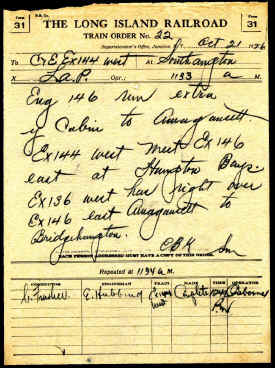 Form 31
Form 31
THE LONG ISLAND RAILROAD
TRAIN ORDER No. 22
Superintendent's Office, Jamaica Oct 21 1926
To C&E Ex 144 west At Southampton
X Opr.; 1133 a M.
Eng 146 run extra
Cabin to Amagansett.
Ex 144 west meet Ex 146
east at Hampton Bays.
Ex 136 west has right over
Ex 146 east Amagansett to
Bridgehampton.
EACH PERSON ADDRESSED MUST HAVE A COPY OF THIS ORDER.
Repeated at 1134 a M.
CONDUCTOR ENGINEMAN TRAIN MADE TIME OPERATOR